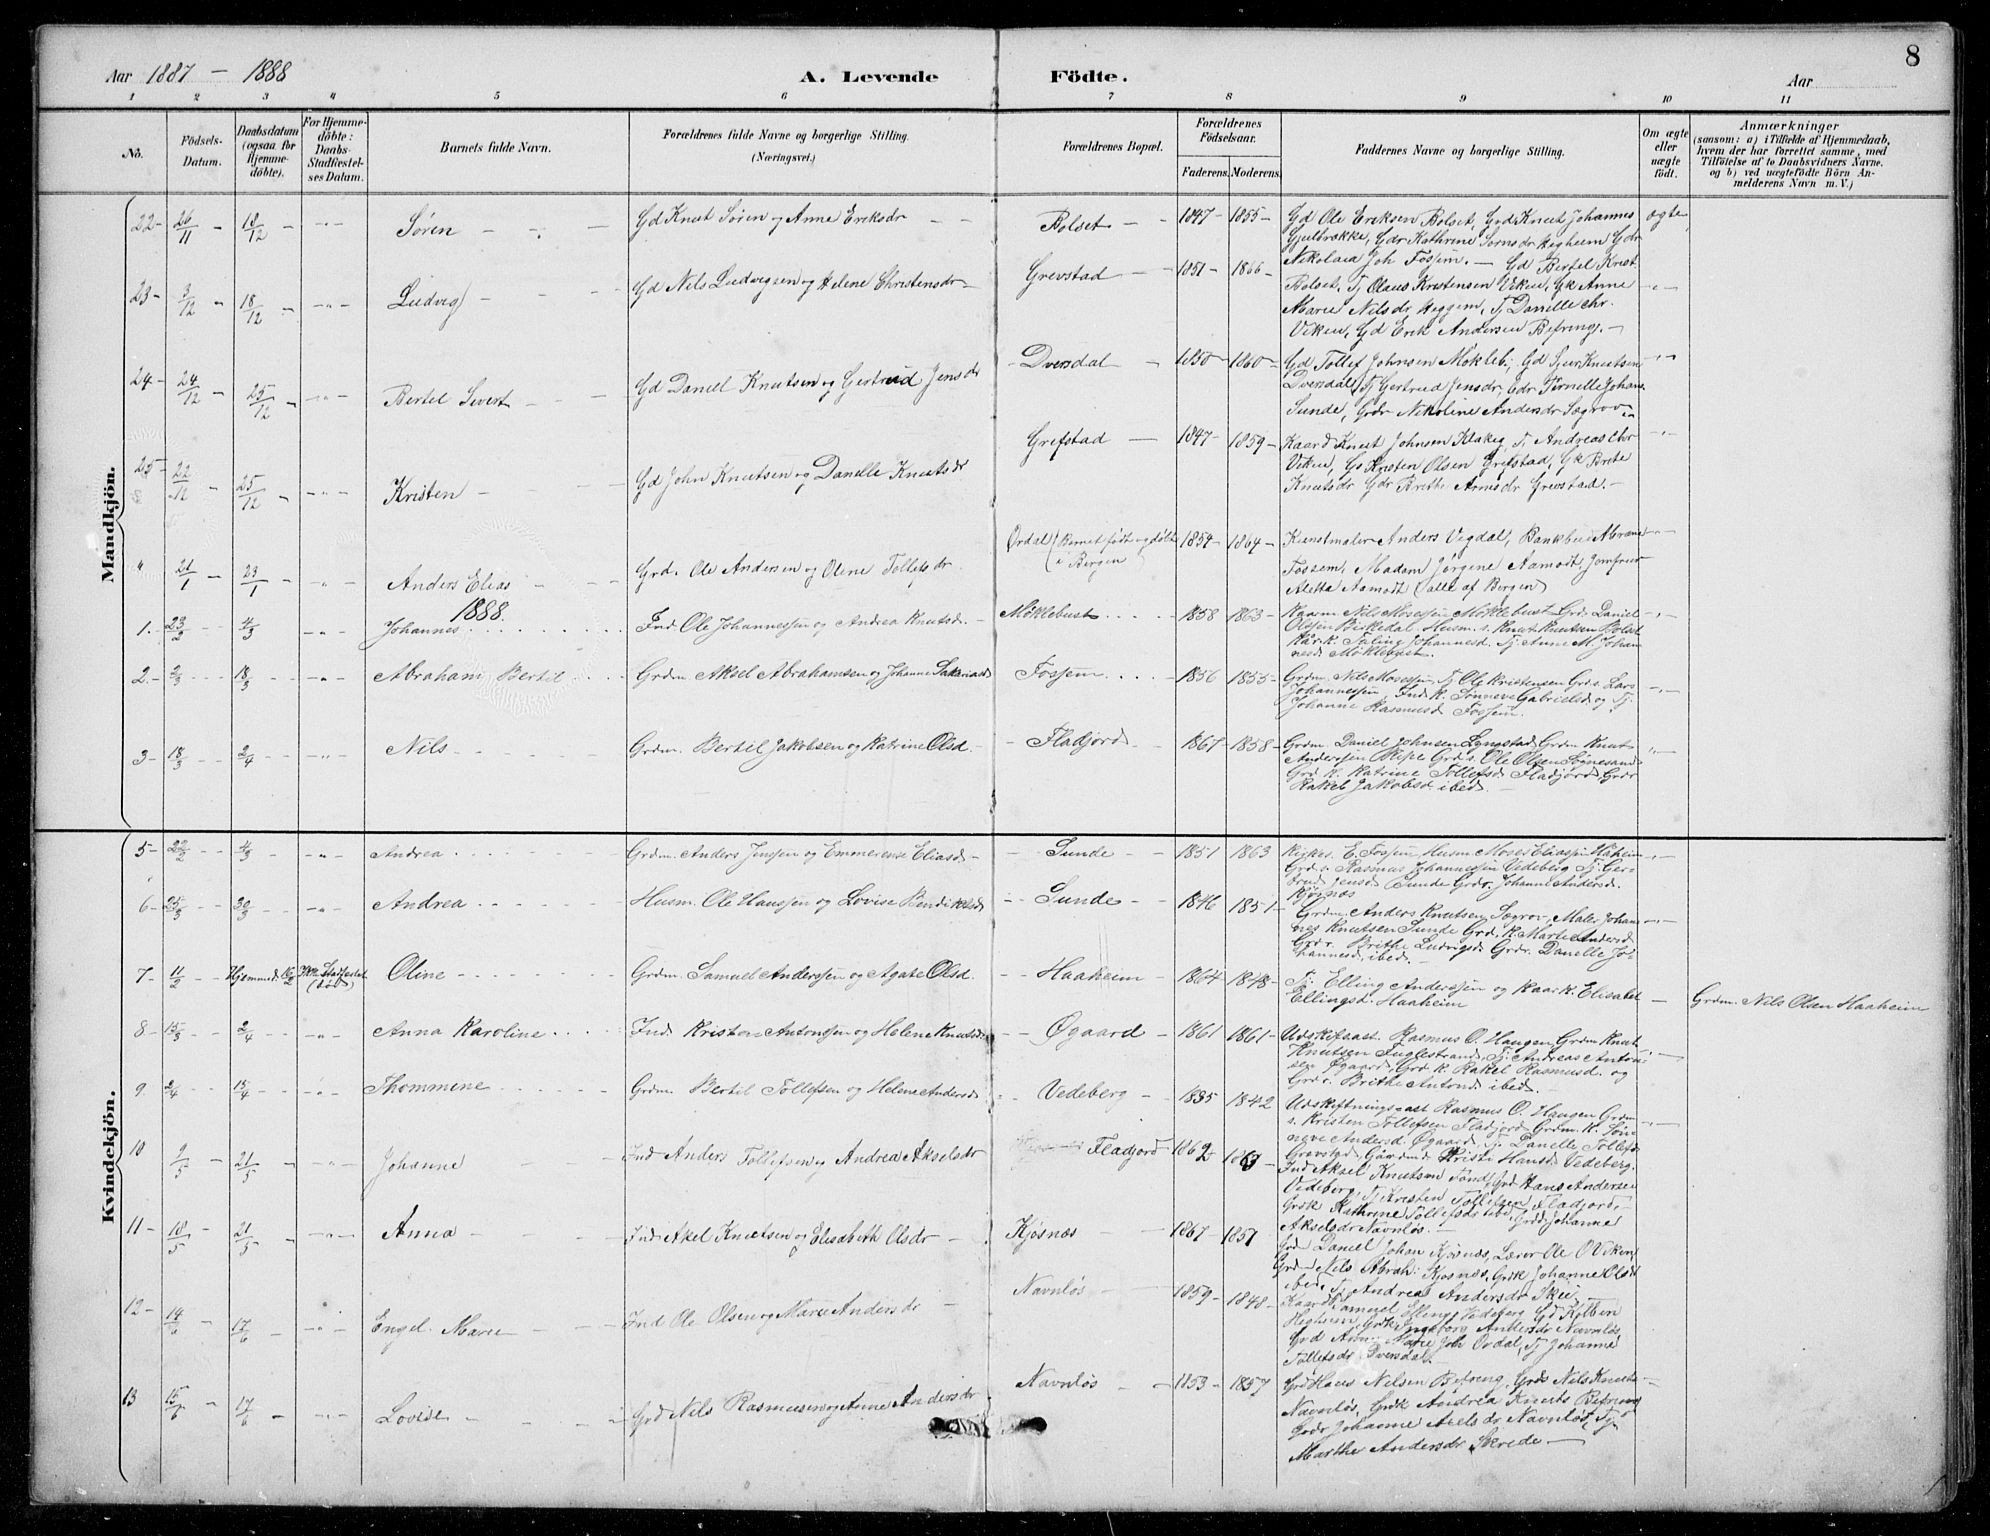 8
Aar 1887 – 1888
A. Levende Födte.
Aar
1 2 3 4 5 6 7 8 9 10 11
No.
Födsels-Datum.
Daabsdatum (ogsaa for Hjemme-döbte).
For Hjemme-döbte: Daabs-Stadfestel-ses Datum.
Barnets fulde Navn.
Forældrenes fulde Navne og borgerlige Stilling. (Næringsvei.)
Forældrenes Bopæl.
Forældrenes Födselsaar.
Faderens. Moderens.
Faddernes Navne og borgerlige Stilling.
Om ægte eller uægte födt.
Anmærkninger
(saasom: a) i Tilfælde af Hjemmedaab, hvem der har forrettet samme, med Tilföielse af to Daabsvidners Navne. og b) ved uægtefödte Börn An-melderens Navn m. V.)
Mandkjön.
22 – 26/11 – 18/12 – -"- Søren – Gd Knut Søren og Anne Eriksdr – Bolset – 1847 – 1855 – Gd Ole Eriksen Bolset, Grd Knut Johannes ægte
Gjelbrække, Gdr Kathrine Sørnsdr Hegheim Gdr
Nikolaia Joh Fossem. –
23 – 3/12 – 18/12 – -"- Ludvig – Gd Nils Ludvigsen og Helene Christensdr – Grevstad – 1851 – 1866 – Gd Bertel Krist
Bolset, Tj Olaus Kristensen Viken, Gk Anne -"-
Marie Nilsdr Heggem, Tj Danielle Chr.
Viken, Gd Erik Andersen Befring. –
24 – 24/12 – 25/12 – -"- Bertel Sivert – Gd Daniel Knutsen og Gertrud Jensdr – Dvergsdal – 1850 – 1860 – Gd Tollef Johnsen Mökleb, Gd Sjur Knutsen -"-
Dversdal, Tj Gertrud Jensdr, Gdr Pernelle Johans
Sunde, Gdr Nikoline Andersdr Sægrov
25 – 22/12 – 25/12 – -"- Kristen – Gd John Knutsen og Danelle Knutsdr – Grefstad – 1847 – 1859 – Kaard Knut Johnsen Klakeg, Tj Andreas Chr -"-
Viken, Gs Kristen Olsen Grefstad, Gk Brite
Knutsdr Gdr Brithe Arnesdr Grevstad. –
" 21/1 – 23/1 – -"- Anders Elias – Grd. Ole Andersen og Olene Tollefsdr – Ordal (Barnet født og døbt i Bergen 1854 – 1864 – Kunstmaler Anders Vegdal, Bankbu Abram -"-
Fossem, Madam Jørgine Aamodt, Jomfrue
Aletta Aamodt (alle af Bergen)
1888.
1. 23/2 4/3 -"- Johannes Ind Ole Johannessen og Andrea Knutsd. – Möklebust 1858 1863 – Kaarm Nils Mosessen Möklebust Grd. Daniel -"-
Olssen Birkedal Husm. s. Knut Knutsen Bolset
Kår.k. Taline Johannesd. Tj. Anne M. Johan
nesd. Möklebust.
2. 2/3 18/3 -"- Abraham Bertil Grdm. Aksel Abrahamsen og Johanne Sakariasd Fossem 1856 1855 – Grdm. Nils Mosessen, Tj Ole Kristensen Grd.s. Lars
Johannessen, Ind k. Sønneve Gabrielsd og Tj. -"-
Johanne Rasmusd Fossem.
3 – 18/3 2/4 -"- Nils Grdm. Bertil Jakobsen og Katrine Olsd. – Fladjord – 1867 – 1858 – Grdm. Daniel Johnsen Lyngstad Grdm Knut -"-
Anderssen Ripe Grd s. Ole Olsen Søgnesand
Grd k. Katrine Tollefsd Fladjord Grdr
Rakel Jakobsd ibed. –
Kvindekjön.
5 – 22/2 4/3 -"- Andrea Grdm. Anders Jenssen og Emmerense Eliasd – Sunde – 1851 1863 Kirkes. E. Fossem Husm Moses Eliassen Haheim -"-
Grd.s. Rasmus Johannessen Vedeberg Tj. Ger-
trud Jensd Sunde Grdr. Johanne Andersd.
Kjøsnæs
6 – 25/3 30/3 -"- Andrea Husm. Ole Hanssen og Lovise Bendiktsd – Sunde – 1846 1851 – Grdm. Anders Knutsen Sægrov, Maler Johan -"-
nes Knutsen Sunde Grd. k. Marte Andersd.
Grd r. Brithe Ludvigsd Grdr. Danelle Jo-
hannesd. ibed. –
7 – 11/2 Hjemmed. 16/2 Ikke Stadfestet (död) Oline Grdm. Samuel Anderssen og Agate Olsd. – Haaheim – 1864 – 1848 – Tj. Elling Anderssen og Kaar k. Elisabet – Grdm. Nils Olsen Haaheim
Ellingsd. Haaheim
8 – 15/3 2/4 -"- Anna Karoline Ind Kristen Antonssen og Helene Knutsd. – Øgaard – 1861 1861 – Udskiftsast. Rasmus O. Haugen, Grdm Knut
Knutsen Fuglestrand, Tj. Andreas Anton- -"-
sen Øgaard, Grd k. Rakel Rasmusd. og
Grd r. Brithe Antonsd ibed. –
9. 2/4 15/4 -"- Thommine Grdm. Bertil Tollefsen og Helene Andersd – Vedeberg – 1835 1842 Udskiftnings-ast Rasmus O. Haugen Grdm
s. Kristen Tollefsen Fladjord Grdm. k. Søn- -"-
neve Andersd. Øgaard Tj. Danelle Tollefsd
Grevstad, Gårdmd Kristi Hansd Vedeberg.
10 9/5 – 21/5 – -"- Johanne Ind Anders Tollefsen og Andrea Akselsdr Fladjord 1862 – 1863 – Ind Aksel Knutsen Fond, Grd Hans Andersen
Vedeberg, Tj Kristen Tollefsen Fladjord,
Grdk Kathrine Tollefsdr ibd, Grdd Johanne
Akselsdr Navnløs. –
11 – 18/5 – 21/5 – -"- Anna – Ind Aksel Knutsen og Elisabeth Olsdr – Kjøsnæs – 1867 – 1857 Grd Daniel Johan Kjøsnæs, Lærer Ole O Viken,
Grd Nils Abrah: Kjøsnæs, Grdk Johanne Olsdr
ibed, Tj Andrea Andersdr Skei –
12 – 14/6 – 17/6 – -"- Engel Marie – Ind Ole Olsen og Marie Andersdr – Navnløs – 1859 – 1848 – Kaard Samuel Ellings Vedeberg Gd
Hegheim, Grdk Ingeborg Andersdr Navnløs,
Grd Marie Joh Ordal, Tj Johanne
Tollefsdr Dversdal.
13 15/6 – 17/6 – -"- Lovise – Grd Nils Rasmussen og Anne Andersdr – Navnløs – 1853 – 1857 Grd Hans Nilsen Befring, Grds Nils Knuts
Navnløs, Grdk Andrea Knuts Befring
Grdr Johanne Axelsdr Navnløs, Tj
Marthe Andersdr Skrede –